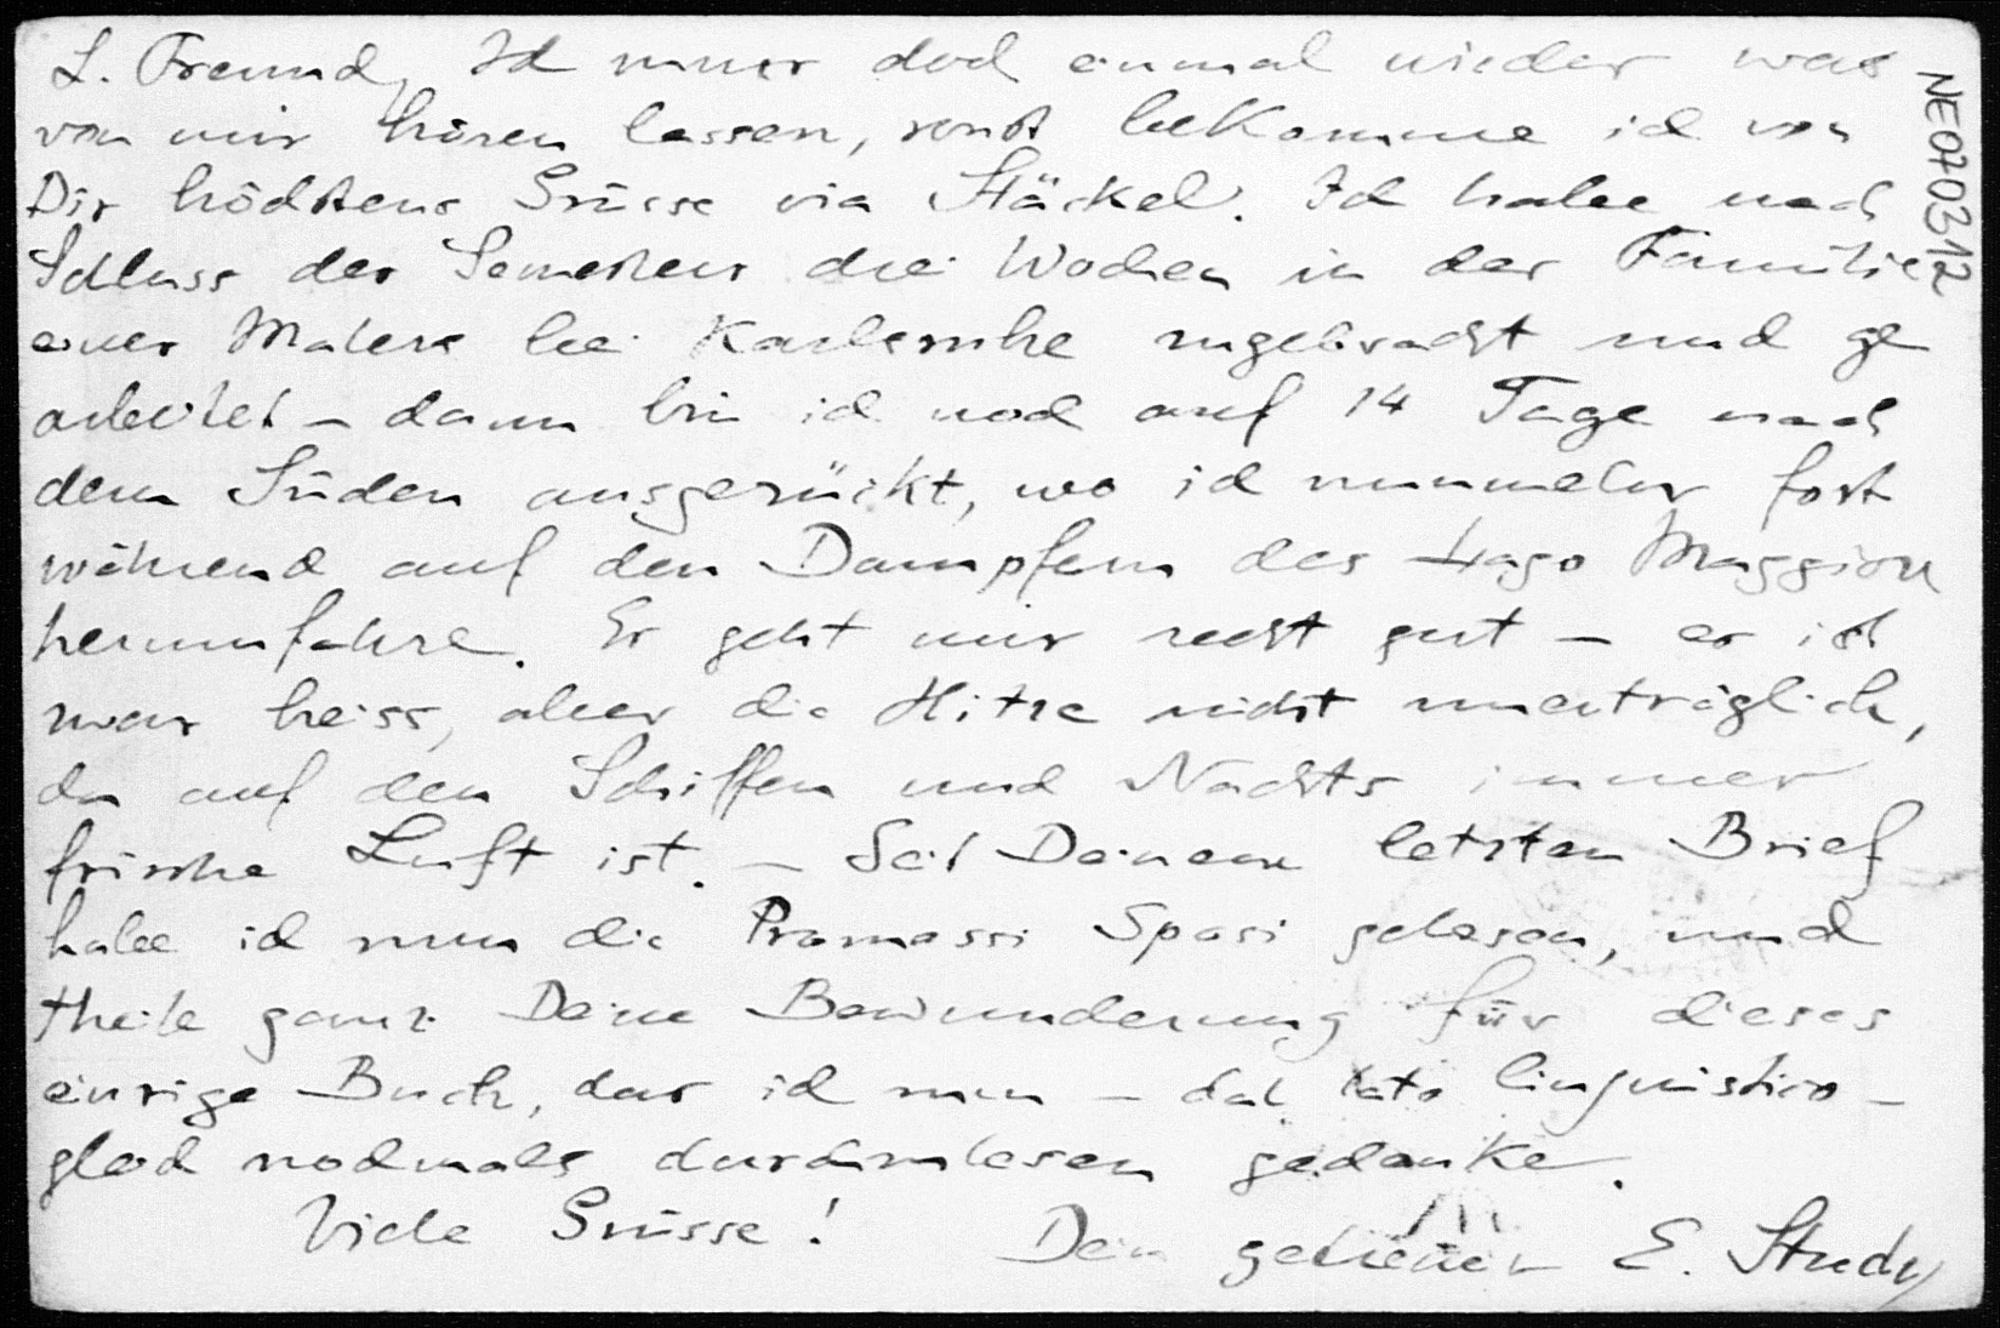 L. Freund, Ich muss doch einmal wieder was
von mir hören lassen, sonst bekomme ich von
Dir höchstens Grüsse via Stäckel. Ich habe nach
Schluss des Semesters drei Wochen in der Familie
eines Malers bei Karlsruhe zugebracht und ge
arbeitet – dann bin ich noch auf 14 Tage nach
dem Süden ausgerückt, wo ich nunmehr fort
während auf den Dampfern des Lago Maggiore
herumfahre. Es geht mir recht gut – es ist
zwar heiss, aber die Hitze nicht unerträglich,
da auf den Schiffen und Nachts immer
frische Luft ist. – Seit Deinem letzten Brief
habe ich nun die Promessi Sposi gelesen, und
theile ganz Deine Bewunderung für dieses
einzige Buch, das ich nun – dal lato linguistico –
gleich nochmals durchzulesen gedenke.
Viele Grüsse! Dein getreuer E. Study
NE070312